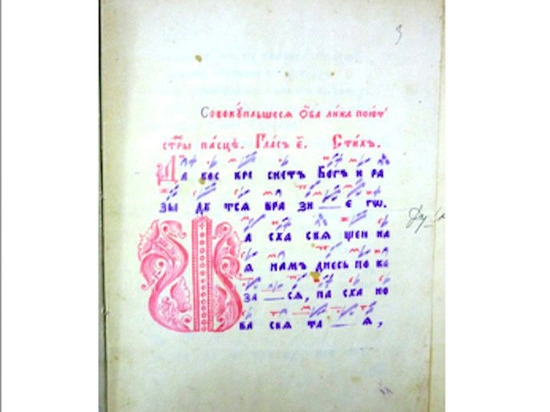 Совокꙋпльшеся Ѻба лика поютъ
стры пасцѣ. Гласъ є҃. Стихъ.
Да вос кре снетъ Богъ и ра
зы дꙋ тся вра зи е гѡ.
а сха свя щен на
я намъ днесь по ка
за ся, па сха но
ва свя та я,